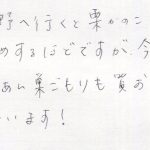 野へ行くと栗がのこ
めするほどですが、今
あ巣ごもりも貰お
います！